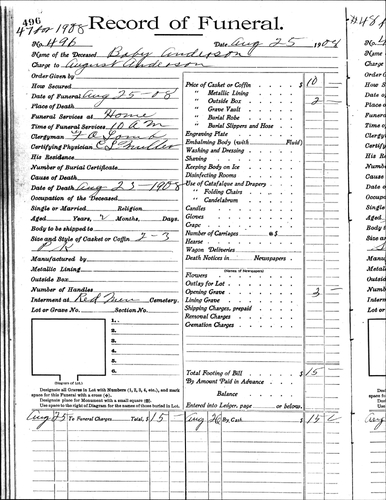 496
47 for 1908
Record of Funeral.
No. 496 Date Aug 25 1908
Name of the Deceased Baby Anderson
Charge to August Anderson
Order Given by
How Secured
Date of Funeral Aug 25-08
Place of Death
Funeral Services at Home
Time of Funeral Services 10 A M
Clergyman
Certifying Physician
His Residence
Number of Burial Certificate
Cause of Death
Date of Death Aug 23-1908
Occupation of the Deceased
Single or Married Religion
Aged Years, 2 Months, Days.
Body to be shipped to
Size and Style of Casket or Coffin 2-3
Manufactured by
Metallic Lining
Outside Box
Number of Handles
Interment at Red Men Cemetery.
Lot or Grave No. Section No.
1.
2.
3.
4.
5.
6.
(Diagram of Lot.)
Designate all Graves in Lot with Numbers (1, 2, 3, 4, etc.), and mark
space for this Funeral with a cross (+).
Designate place for Monument with a small square
Use space to the right of Diagram for the names of those buried in Lot.
Price of Casket or Coffin $ 10
" Metallic Lining
" Outside Box 2 —
" Grave Vault
" Burial Robe
" Burial Slippers and Hose
Engraving Plate
Embalming Body (with Fluid)
Washing and Dressing
Shaving
Keeping Body on Ice
Disinfecting Rooms
Use of Catafalque and Drapery
" Folding Chairs
" Candelabrum
Candles
Gloves
Crape
Number of Carriages @ $
Hearse
Wagon Deliveries
Death Notices in Newspapers
(Names of Newspapers)
Flowers
Outlay for Lot
Opening Grave 3 —
Lining Grave
Shipping Charges, prepaid
Removal Charges
Cremation Charges
Total Footing of Bill $ 15
By Amount Paid in Advance
Balance
Entered into Ledger, page or below.
Aug 25 To Funeral Charges Total, $ 15 — Aug 26 By Cash $ 15